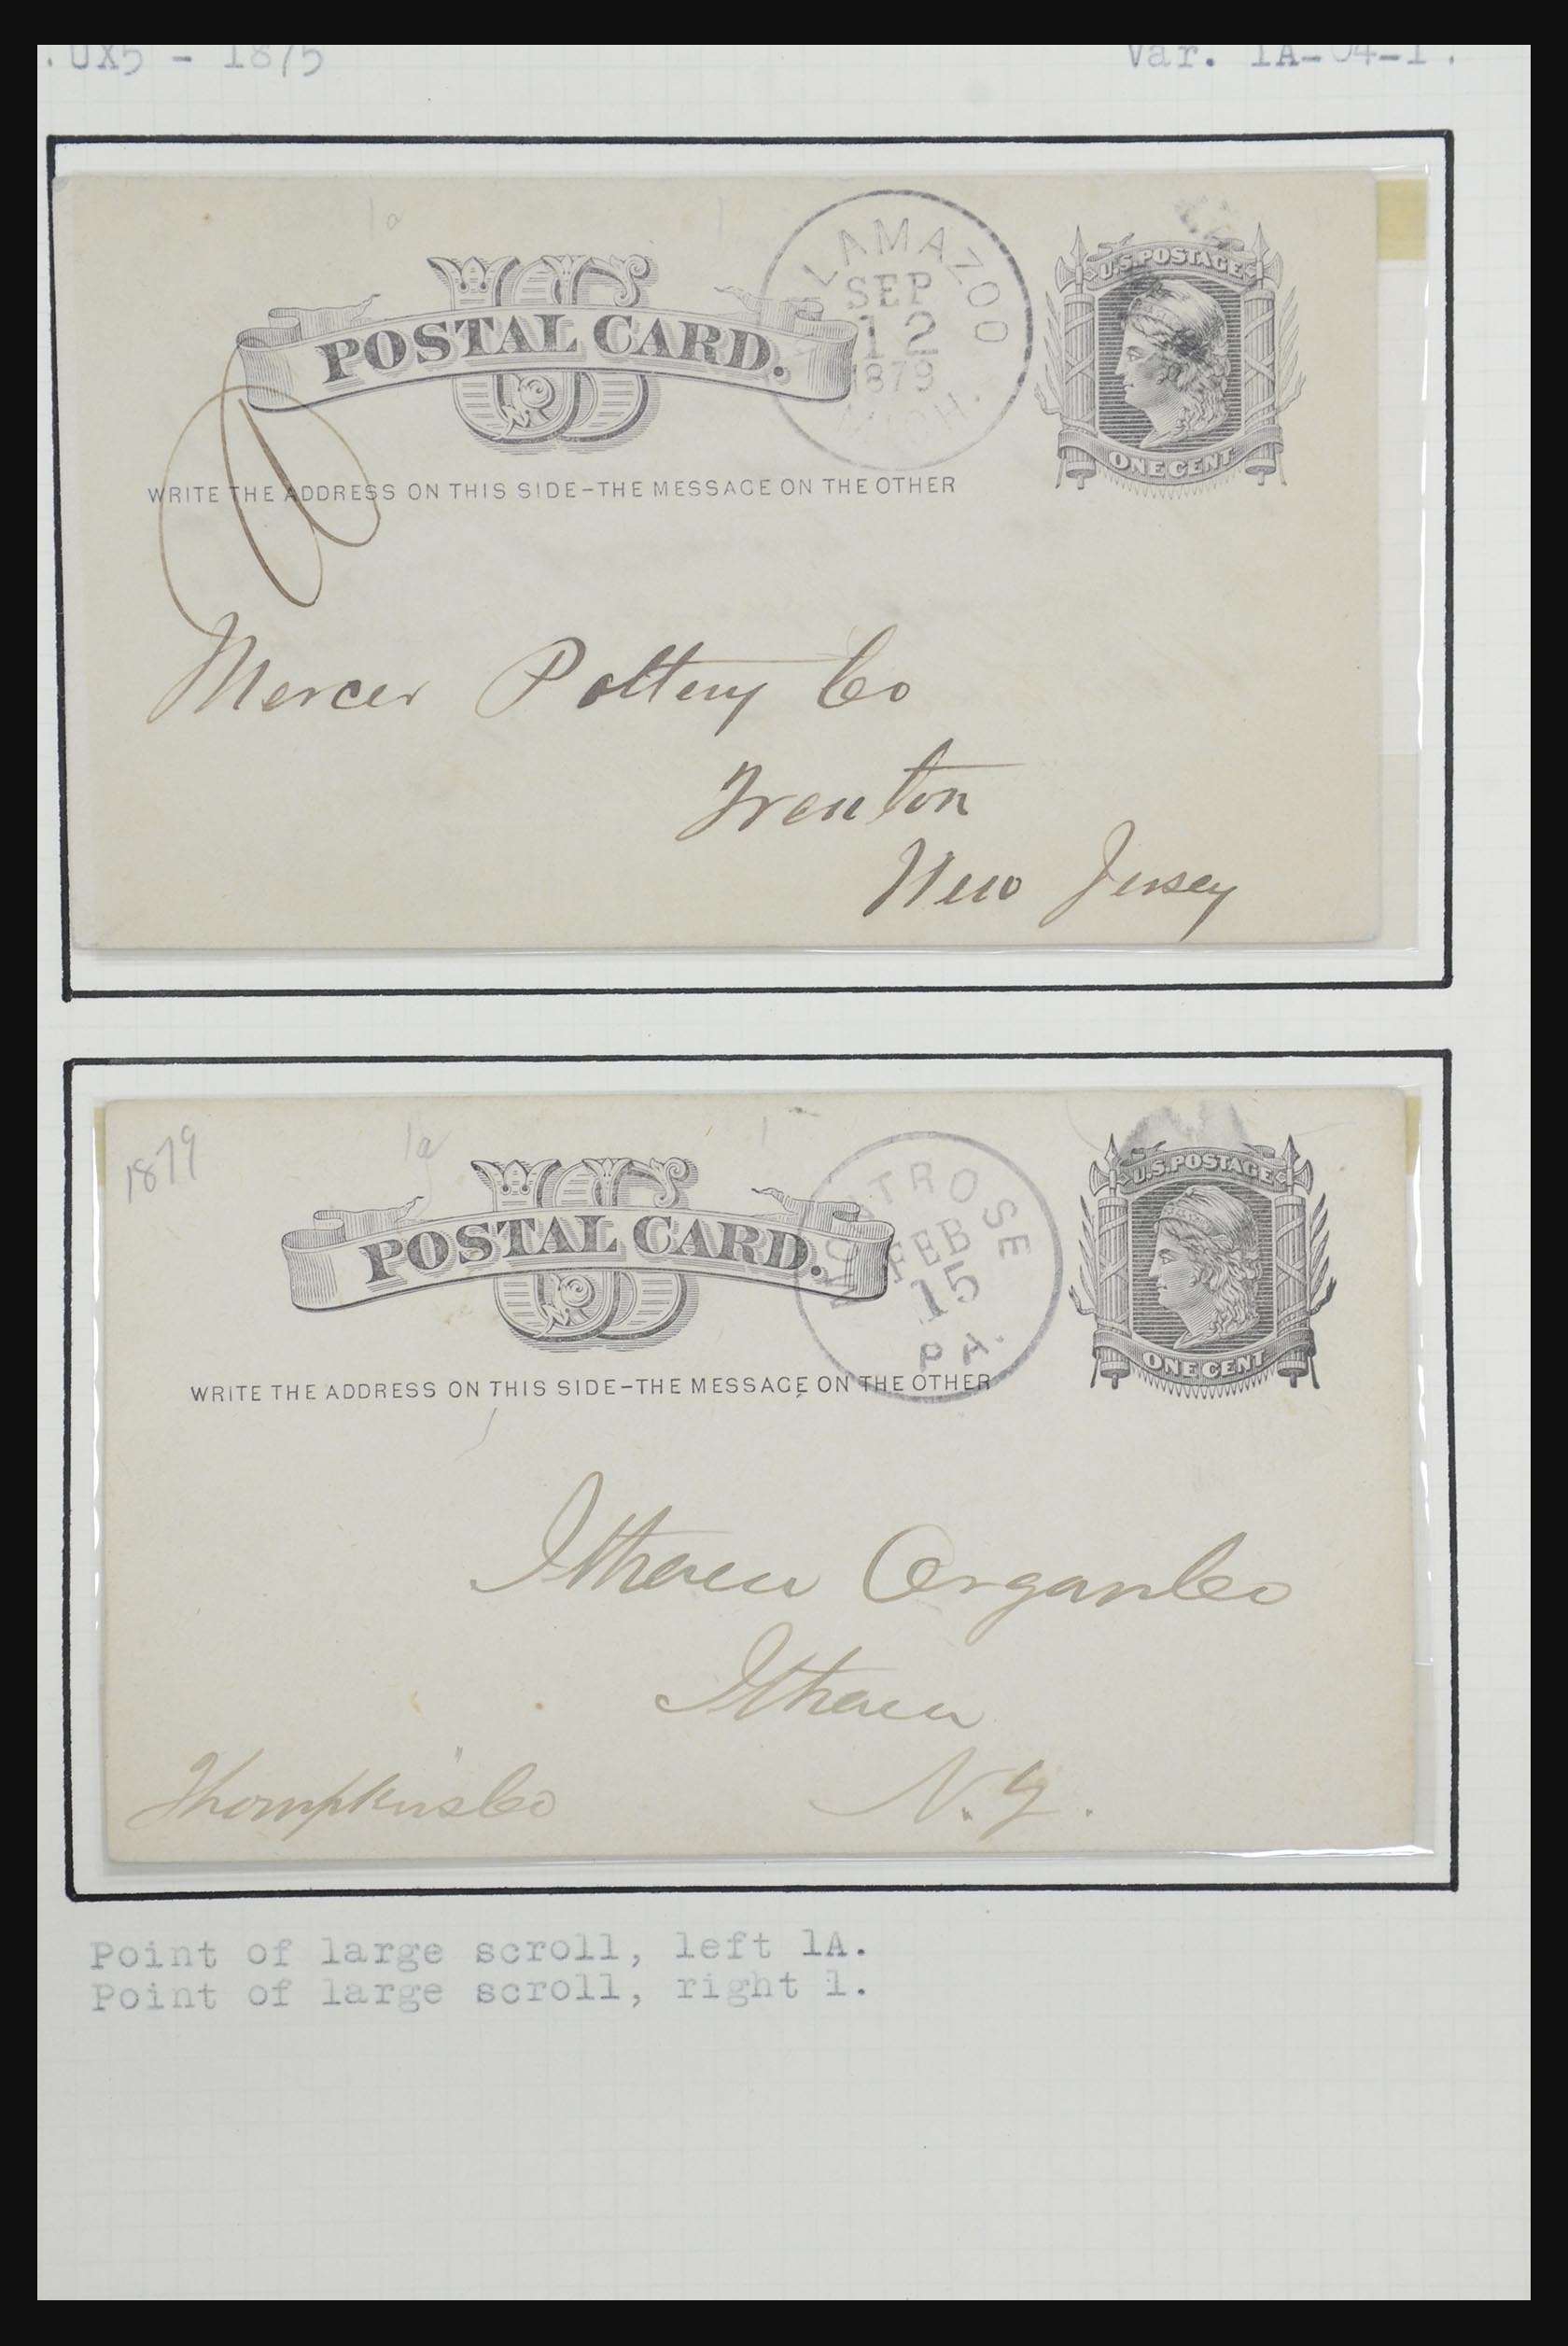 .UX5 - 1875
Var. 1A-04-1.
1a
1
US
POSTAL CARD.
LAMAZOO
SEP
12
1879
MICH.
U.S. POSTAGE
ONE CENT
WRITE THE ADDRESS ON THIS SIDE-THE MESSAGE ON THE OTHER
Mercer Pottery Co
Trenton
New Jersey
1879
1a
1
US
POSTAL CARD.
MONTROSE
FEB
15
PA.
U.S. POSTAGE
ONE CENT
WRITE THE ADDRESS ON THIS SIDE-THE MESSAGE ON THE OTHER
Ithaca Organ Co
Ithaca
Thompkins Co
N.Y.
Point of large scroll, left 1A.
Point of large scroll, right 1.